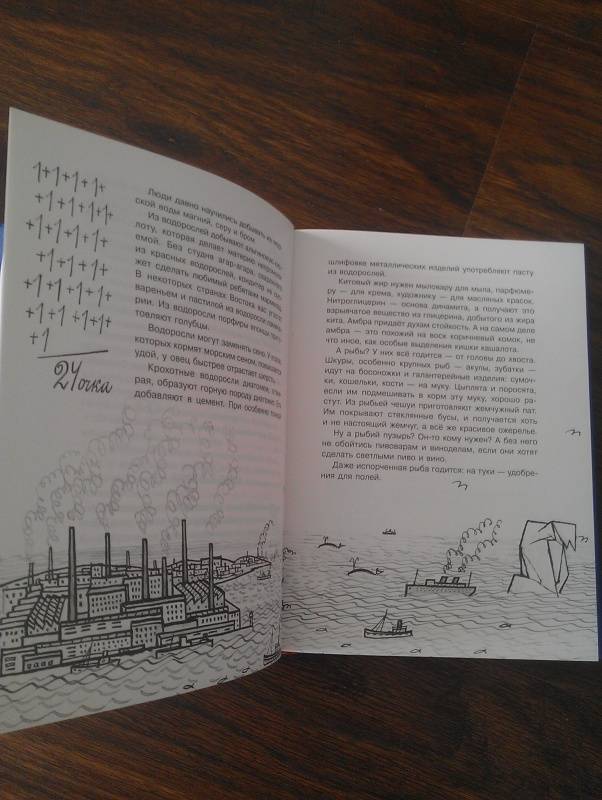 1+1+1+1+
1+1+1+1+
1+1+1+1+
1+1+1+1+
1+1+1+1+
1+1+1+1+
+1
24 очка
Люди давно научились добывать из
ской воды магний, серу и бром.
Из водорослей добывают
лоту, которая делает материю
емой. Без студня агар-агара,
из красных водорослей, кондитер не
жет сделать любимый ребятам мармелад.
В некоторых странах Востока вас угостят
вареньем и пастилой из водоросли
рии. Из водоросли порфиры японцы
товляют голубцы.
Водоросли могут заменять сено. У коров,
которых кормят морским сеном,
удой, у овец быстрее отрастает шерсть.
Крохотные водоросли диатомеи,
рая, образуют горную породу диатомит. Его
добавляют в цемент. При особенно тонкой
шлифовке металлических изделий употребляют пасту
из водорослей.
Китовый жир нужен мыловару для мыла, парфюме-
ру — для крема, художнику — для масляных красок.
Нитроглицерин — основа динамита, а получают это
взрывчатое вещество из глицерина, добытого из жира
кита. Амбра придаёт духам стойкость. А на самом деле
амбра — это похожий на воск коричневый комок, не
что иное, как особые выделения кишки кашалота.
А рыбы? У них всё годится — от головы до хвоста.
Шкуры, особенно крупных рыб — акулы, зубатки —
идут на босоножки и галантерейные изделия: сумоч-
ки, кошельки, кости — на муку. Цыплята и поросята,
если им подмешивать в корм эту муку, хорошо ра-
стут. Из рыбьей чешуи приготовляют жемчужный пат.
Им покрывают стеклянные бусы, и получается хоть
и не настоящий жемчуг, а всё же красивое ожерелье.
Ну а рыбий пузырь? Он-то кому нужен? А без него
не обойтись пивоварам и виноделам, если они хотят
сделать светлыми пиво и вино.
Даже испорченная рыба годится: на туки — удобре-
ния для полей.